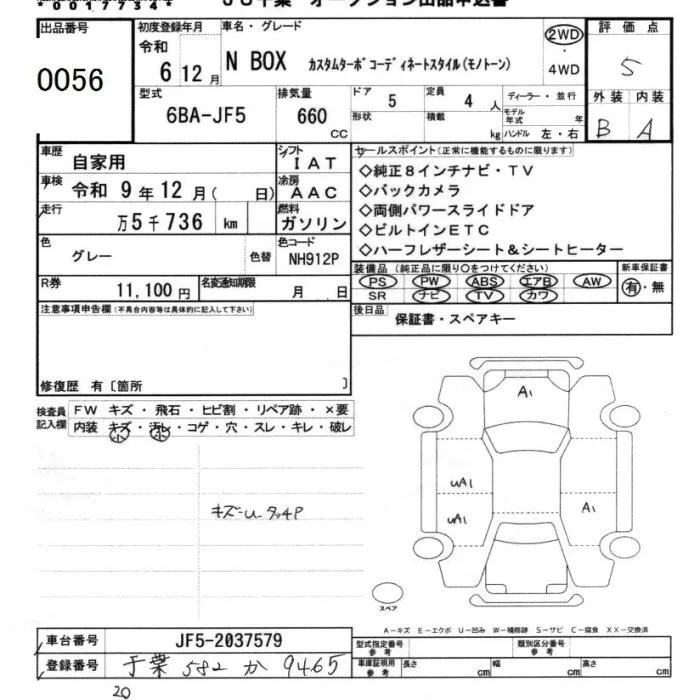 00177347
JU千葉 オークション出品申込書
出品番号
0056
初度登録年月
令和
6 12 月
車名・グレード
N BOX カスタムターボ コーディネートスタイル(モノトーン)
2WD
・
4WD
評価点
5
外装 内装
B A
型式
6BA-JF5
排気量
660
CC
ドア
5
定員
4 人
形状
積載
kg
ディーラー・並行
モデル年式 年
ハンドル 左・右
車歴
自家用
シフト
IAT
車検
令和 9 年 12 月( 日)
冷房
AAC
走行
万5千736 km
燃料
ガソリン
色
グレー
色替
色コード
NH912P
R券
11,100 円
名変通知期限
月 日
セールスポイント(正常に機能するものに限ります)
◇純正8インチナビ・TV
◇バックカメラ
◇両側パワースライドドア
◇ビルトインETC
◇ハーフレザーシート&シートヒーター
装備品 (純正品に限り○をつけてください)
PS PW ABS エアB AW
SR ナビ TV カワ
新車保証書
有・無
後日品
保証書・スペアキー
注意事項申告欄(不具合内容等は具体的に記入して下さい)
修復歴 有〔箇所 〕
検査員
記入欄
FW キズ・飛石・ヒビ割・リペア跡・×要
内装 キズ・汚レ・コゲ・穴・スレ・キレ・破レ
小 小
キズ=U タッチP
A1
uA1
uA1
A1
スペア
A-キズ E-エクボ U-凹み W-補修跡 S-サビ C-腐食 XX-交換済
車台番号
JF5-2037579
登録番号
千葉 582 か 9465
20
型式指定番号
参考
類別区分番号
参考
車庫証明用
参考
長さ cm
幅 cm
高さ cm